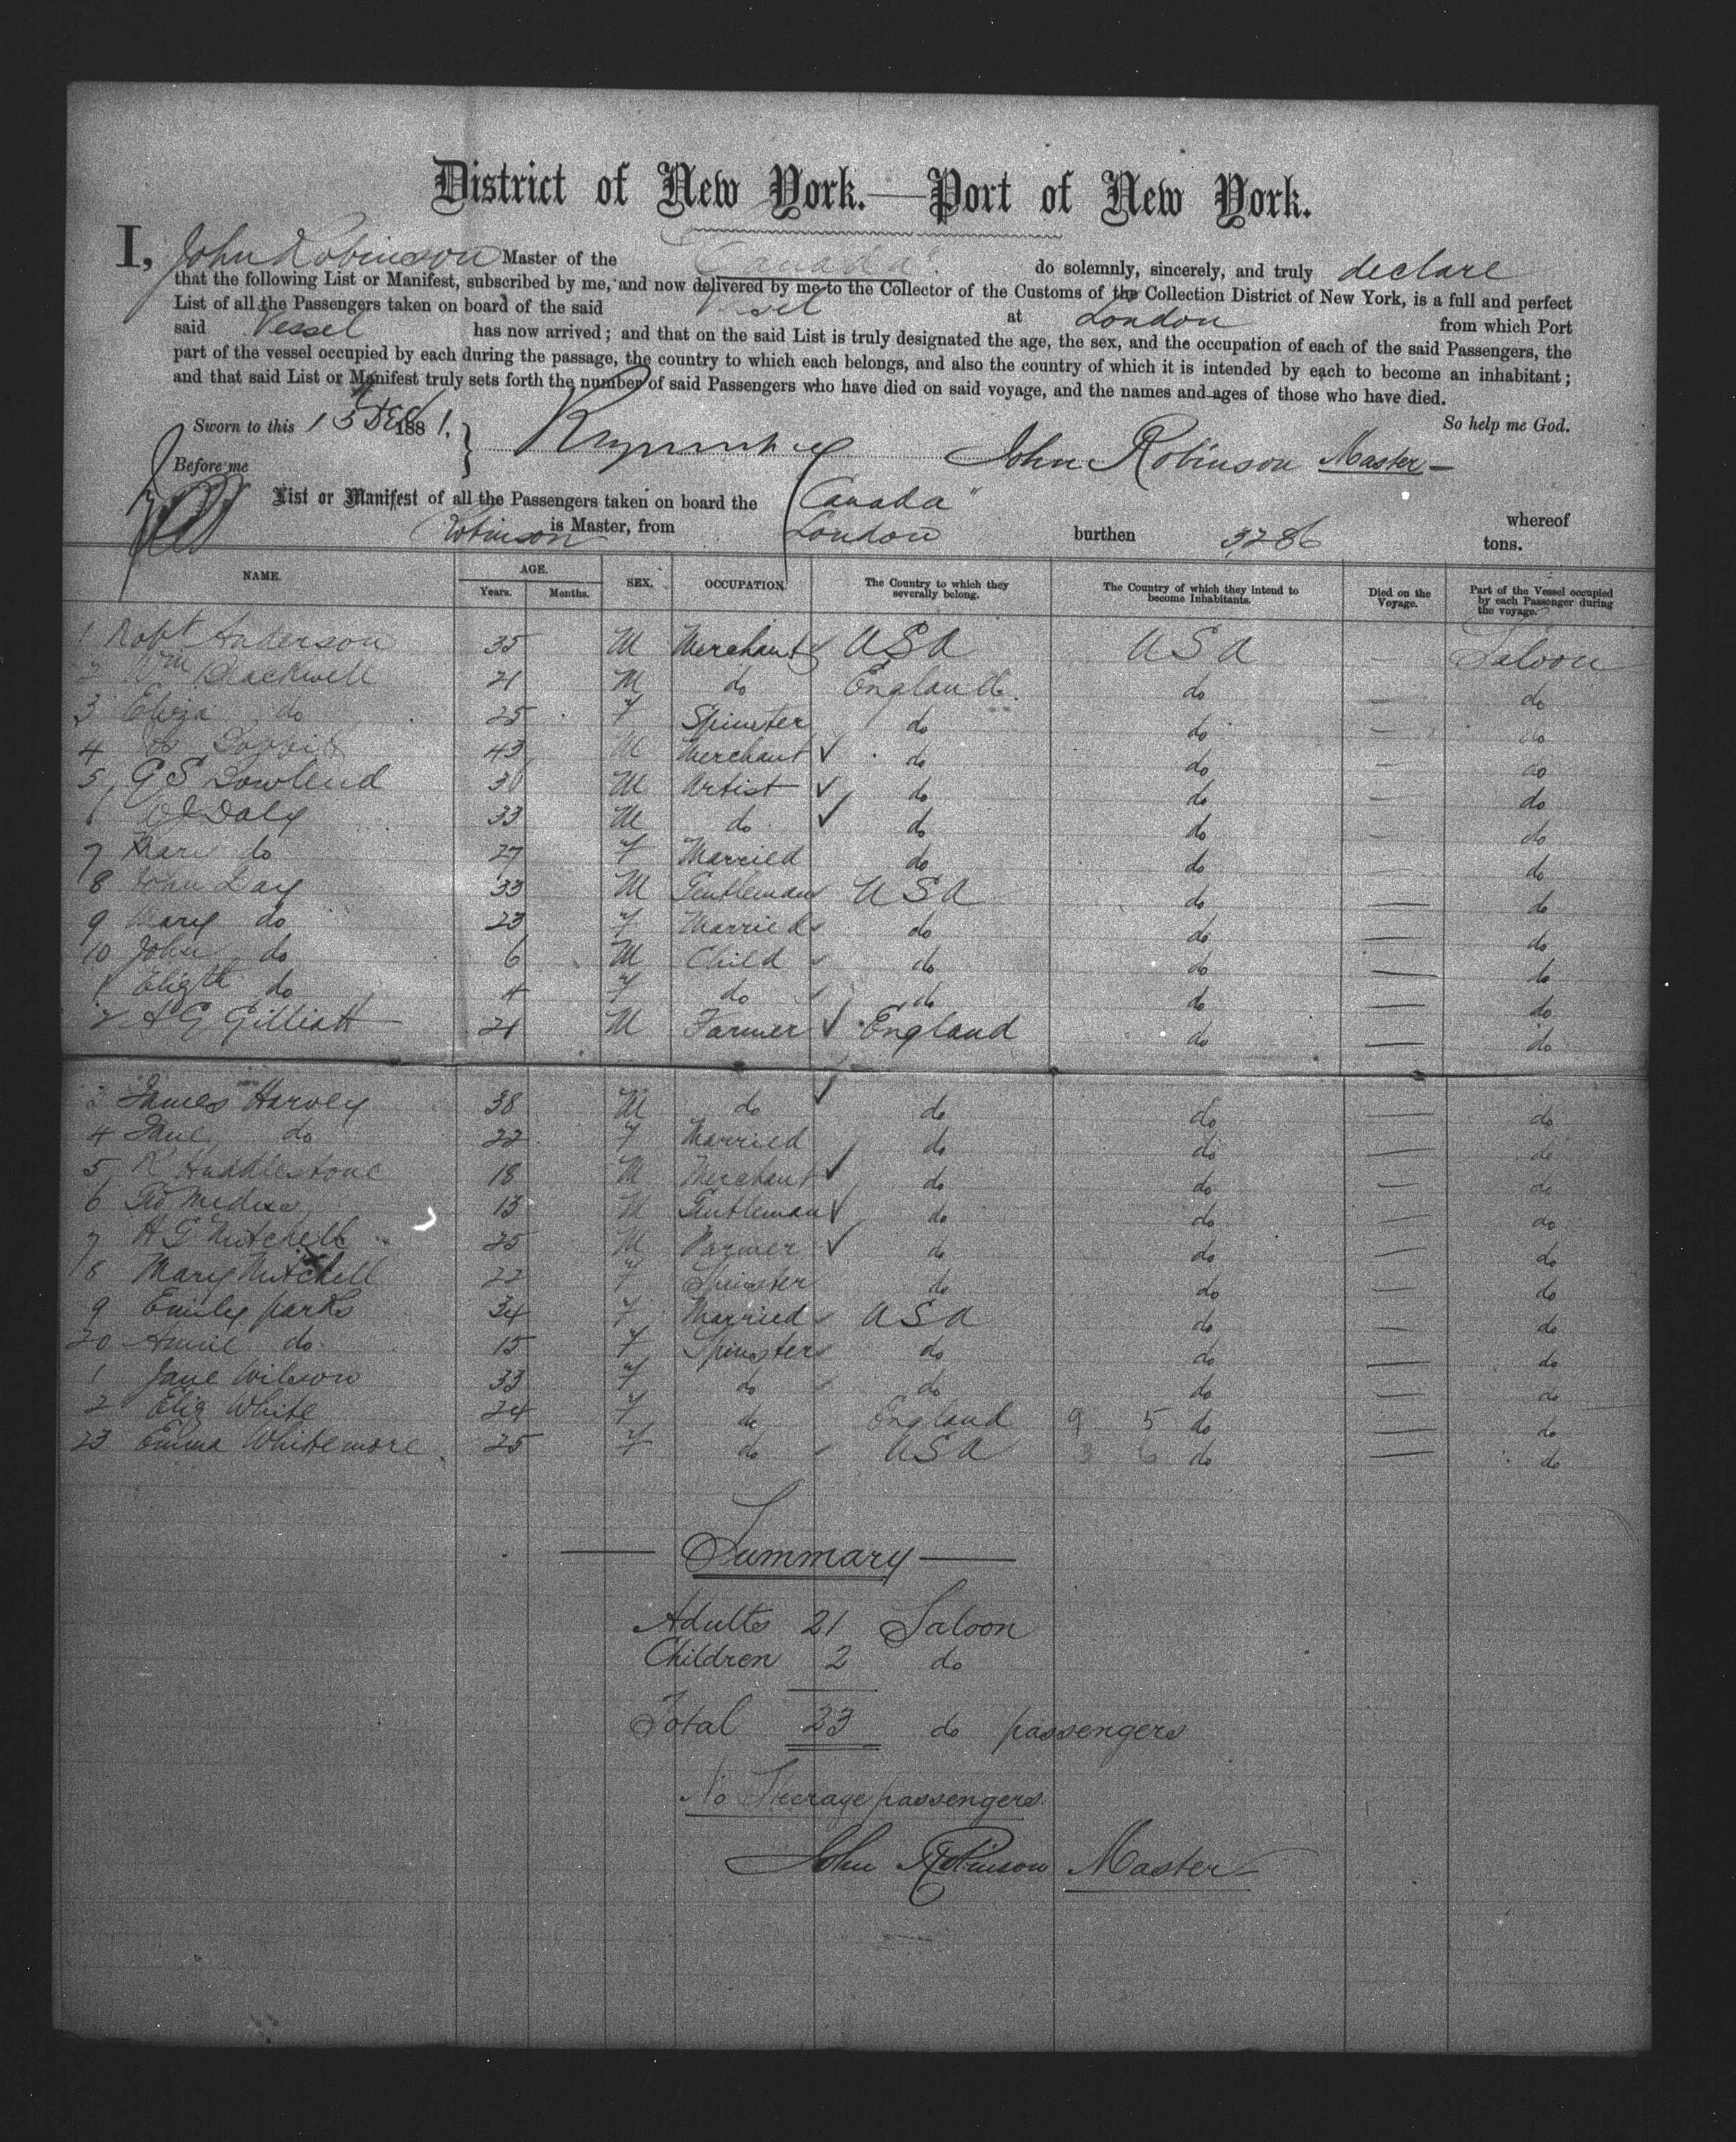 District of New York.—Port of New York.
I, John Robinson Master of the "Canada". do solemnly, sincerely, and truly declare
that the following List or Manifest, subscribed by me, and now delivered by me to the Collector of the Customs of the Collection District of New York, is a full and perfect
List of all the Passengers taken on board of the said Vessel at London from which Port
said Vessel has now arrived; and that on the said List is truly designated the age, the sex, and the occupation of each of the said Passengers, the
part of the vessel occupied by each during the passage, the country to which each belongs, and also the country of which it is intended by each to become an inhabitant;
and that said List or Manifest truly sets forth the number of said Passengers who have died on said voyage, and the names and ages of those who have died.
So help me God.
Sworn to this 13 DEC 1881.
John Robinson Master
Before me
List or Manifest of all the Passengers taken on board the "Canada" whereof
Robinson is Master, from London burthen 3286 tons.
NAME. AGE. Years. Months. SEX. OCCUPATION. The Country to which they severally belong. The Country of which they intend to become Inhabitants. Died on the Voyage. Part of the Vessel occupied by each Passenger during the voyage.
1 Robt Anderson 35 M Merchant USA USA — Saloon
2 Wm Blackwell 21 M do England do — do
3 Eliza do 25 F Spinster do do — do
4 43 M Merchant do do — do
5 G S Dowlend 30 M Artist do do — do
6 W J Daly 33 M do do do — do
7 Mary do 27 F Married do do — do
8 John Day 33 M Gentleman USA do — do
9 Mary do 23 F Married do do — do
10 John do 6 M Child do do — do
1 Elizth do 4 F do do do — do
2 A G Gilliatt 21 M Farmer England do — do
3 James Harvey 38 M do do do — do
4 Jane do 22 F Married do do — do
5 R Huddlestone 18 M Merchant do do — do
6 13 M Gentleman do do — do
7 H G Mitchell 25 M Farmer do do — do
8 Mary Mitchell 22 F Spinster do do — do
9 Emily parks 34 F Married USA do — do
20 Annie do 15 F Spinster do do — do
1 Jane Wilson 33 F do do do — do
2 Eliz White 24 F do England 9 5 do — do
23 Emma Whitemore 25 F do USA 3 6 do — do
Summary
Adults 21 Saloon
Children 2 do
Total 23 do passengers
No Steerage passengers.
John Robinson Master